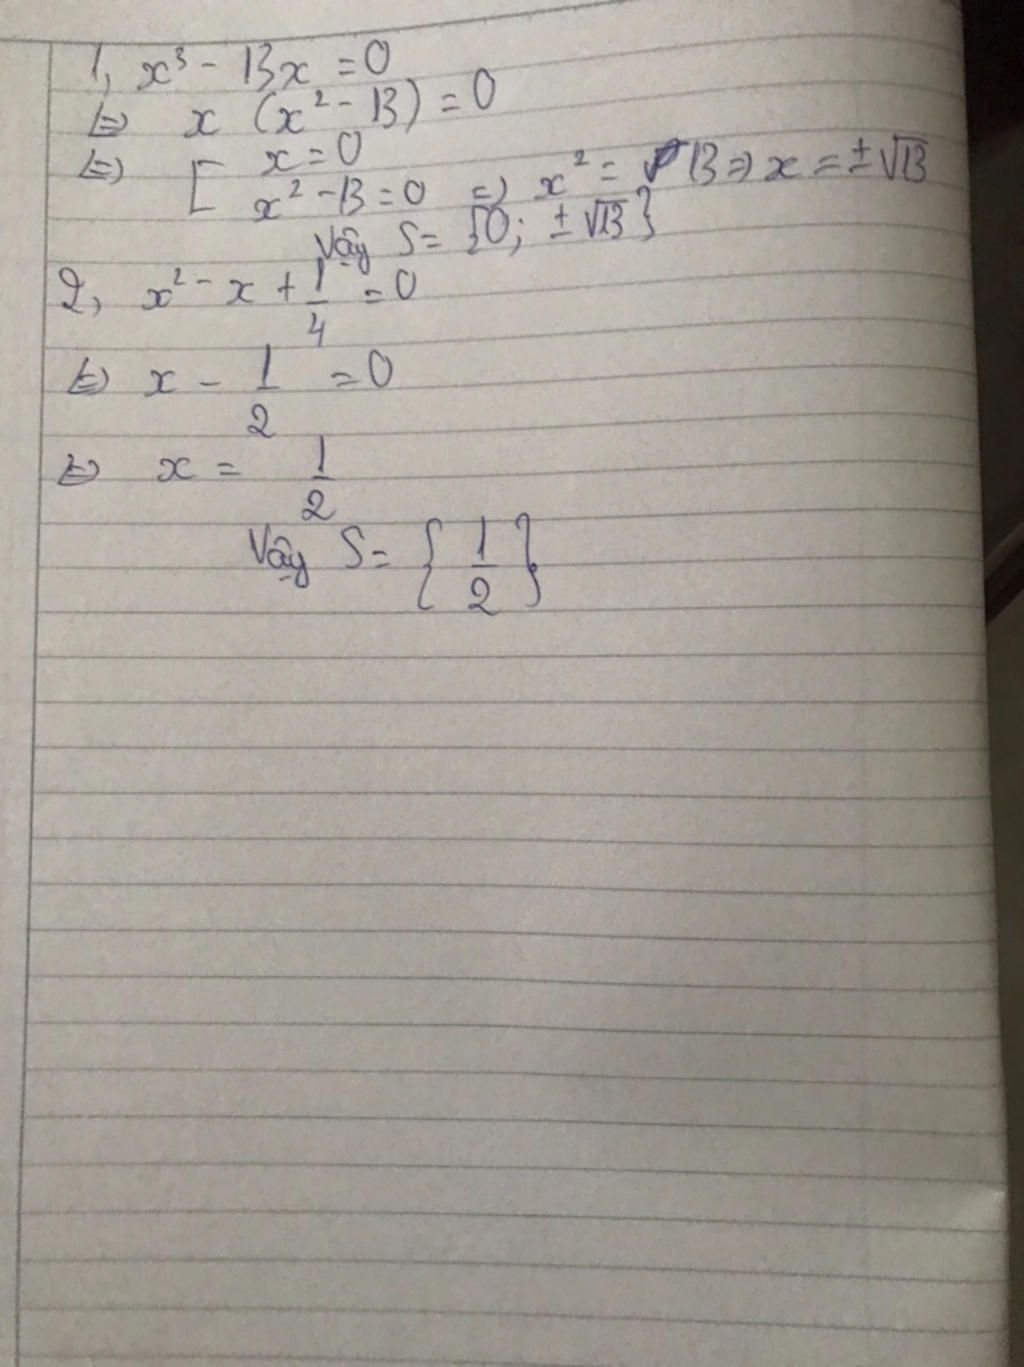 1, x³ - 13x = 0
⇔ x (x² - 13) = 0
⇔ [ x = 0
x² - 13 = 0 ⇒ x² = 13 ⇒ x = ±√13
Vậy S = {0; ±√13}
2, x² - x + 1/4 = 0
⇔ x - 1/2 = 0
⇔ x = 1/2
Vậy S = {1/2}